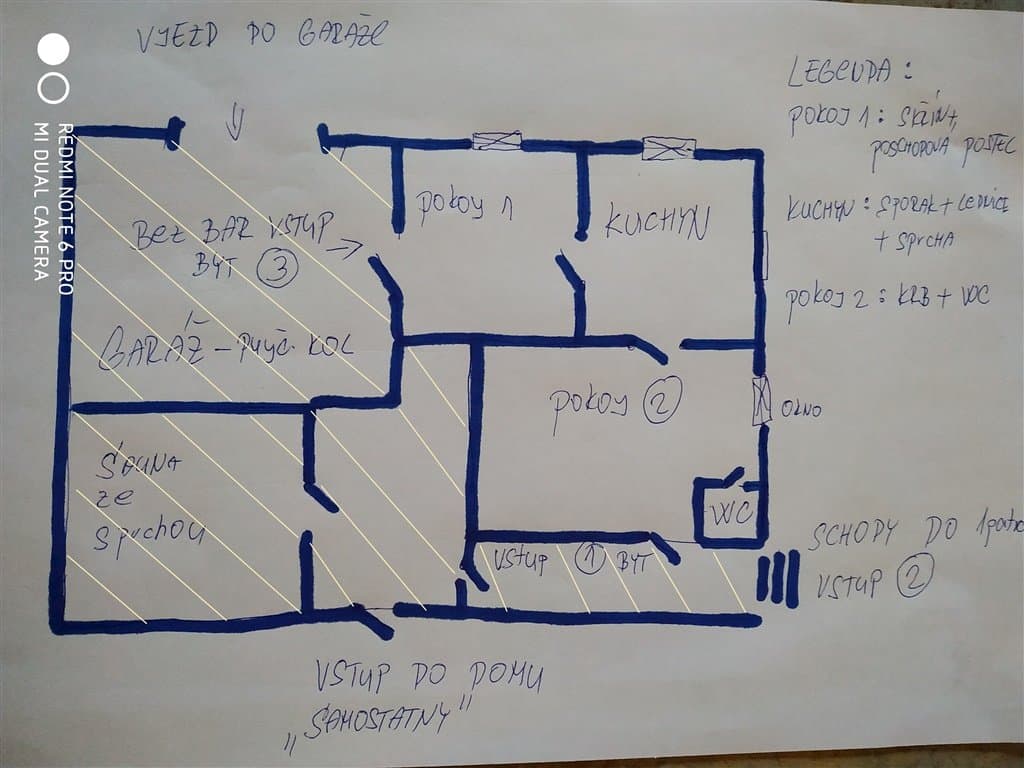 VJEZD DO GARÁŽE
LEGENDA :
POKOJ 1 : SKŘÍŇ+,
POSCHOĎOVÁ POSTEL
KUCHYN : SPORAK + LEDNICE
+ SPRCHA
POKOJ 2 : KRB + WC
POKOJ 1
KUCHYN
BEZ BAR VSTUP
BYT 3
GARÁŽ - PŮJČ. KOL
POKOJ 2
OKNO
SAUNA
ZE
SPRCHOU
WC
VSTUP 1 BYT
SCHODY DO 1 patra
VSTUP 2
VSTUP DO DOMU
„SAMOSTATNÝ"
REDMI NOTE 6 PRO
MI DUAL CAMERA